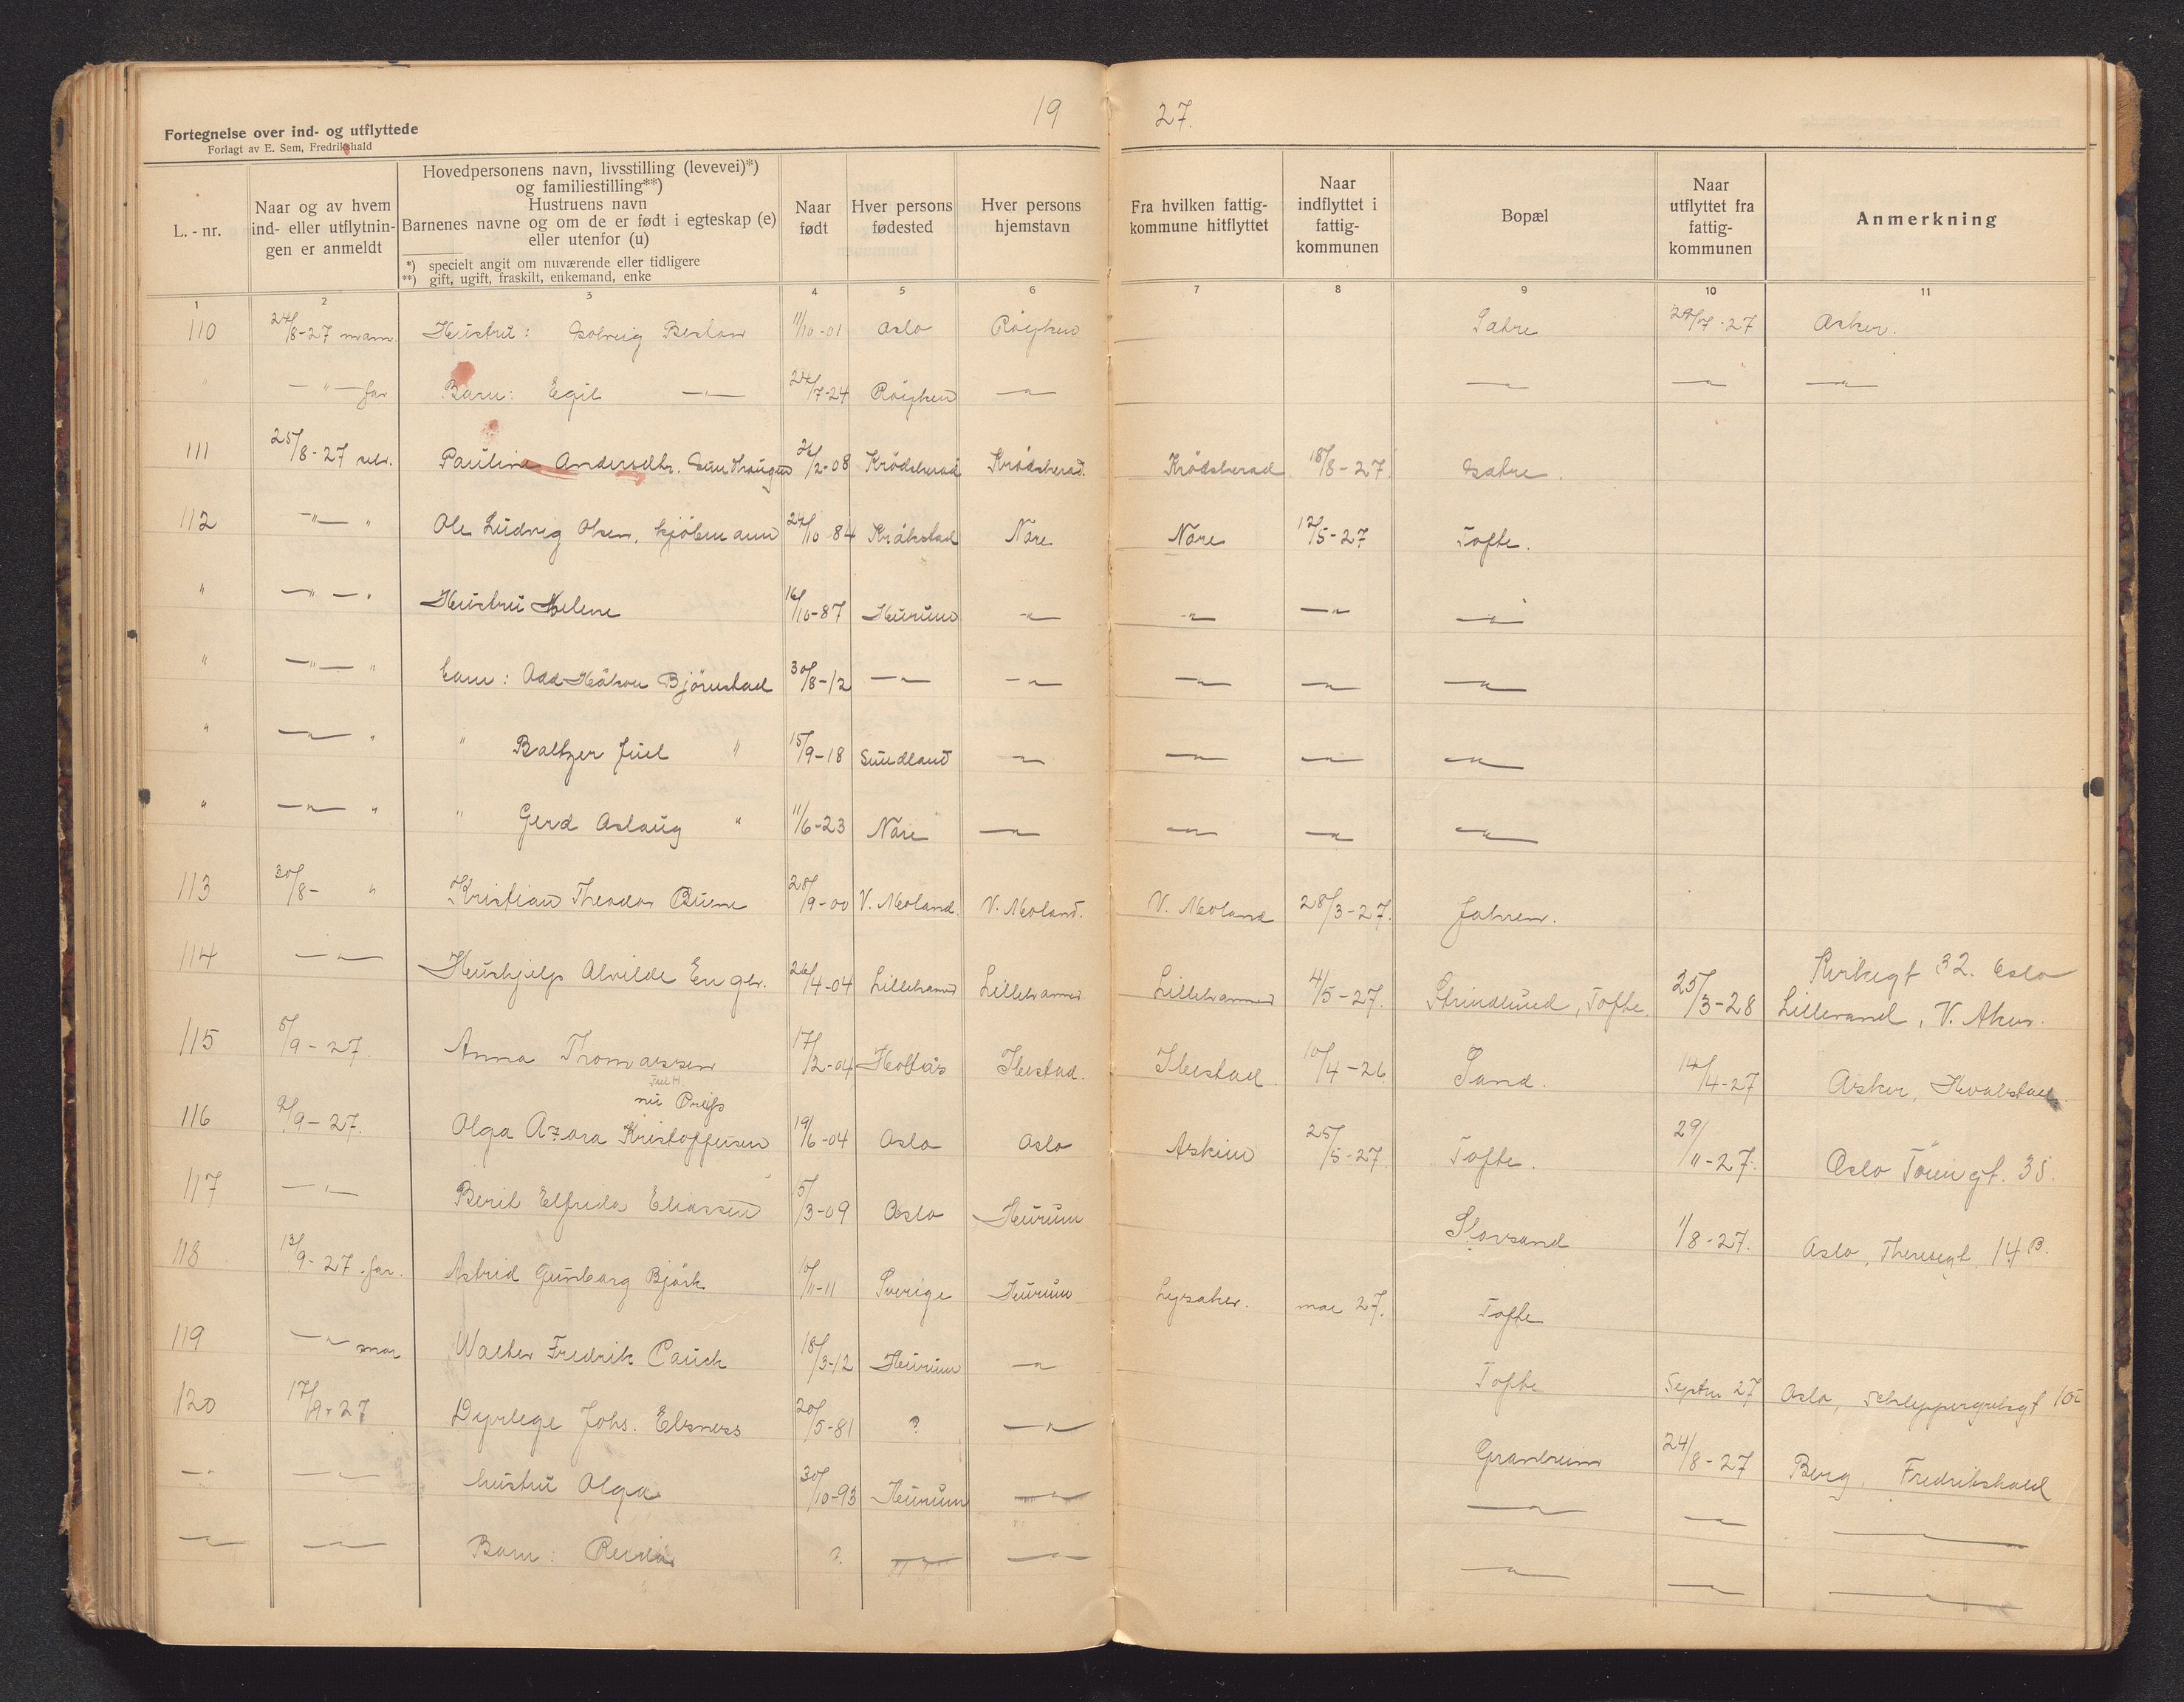 19 27.
Fortegnelse over ind- og utflyttede
Forlagt av E. Sem, Fredrikshald
L. - nr.
Naar og av hvem ind- eller utflytnin- gen er anmeldt
Hovedpersonens navn, livsstilling (levevei)*)
og familiestilling**)
Hustruens navn
Barnenes navne og om de er født i egteskap (e)
eller utenfor (u)
*) specielt angit om nuværende eller tidligere
**) gift, ugift, fraskilt, enkemand, enke
Naar født
Hver persons fødested
Hver persons hjemstavn
Fra hvilken fattig- kommune hitflyttet
Naar indflyttet i fattig- kommunen
Bopæl
Naar utflyttet fra fattig- kommunen
Anmerkning
1 2 3 4 5 6 7 8 9 10 11
110 24/8-27 mann Hustru: Solveig 11/10-01 Oslo Røyken Sætre 29/7-27 Asker.
" —"— far Barn: Egil —"— 24/7-24 Røyken —"— —"— —"— —"—
111 25/8-27 selv. Pauline Andersdtr. 2/2-08 Krødsherad Krødsherad. Krødsherad 18/8-27 Sætre.
112 —"— " Ole Ludvig Olsen, kjøbmann 24/10 84 Kråkstad Nore Nore 12/5-27 Tofte.
" —"— " Hustru Helene 16/10-87 Hurum —"— —"— —"— —"—
" —"— " barn: Odd Håkon Bjørnstad 30/8-12 —"— —"— —"— —"— —"—
" —"— " " Baltzer Juel " 15/9-18 Sundland —"— —"— —"— —"—
" —"— " " Gerd Aslaug " 11/6-23 Nore —"— —"— —"— —"—
113 30/8- " Kristian Theodor 28/9-00 V. Moland. V. Moland. V. Moland 28/3-27.
114 —"— Hushjelp Alvilde Engh. 26/4-04 Lillehammer Lillehammer Lillehammer 4/5-27. Strindlund, Tofte. 25/3-28 Kirkegt 32. Oslo
Lillerand, V. Aker.
115 5/9-27. Anna Thomassen 17/2-04 Ibestad. Ibestad. 10/4-26 Sand. 14/4-27 Asker, Hvalstad.
nu
116 9/9-27. Olga Azora Kristoffersen 19/6-04 Oslo Oslo Askim 25/5-27 Tofte. 29/11-27. Oslo Tøiengt. 38.
117 —"— Beril Elfrida Eliassen 5/3-09 Oslo Hurum 1/8-27. Oslo, Theresegt. 14 B.
118 13/9-27 far. Astrid Gunborg Björk 10/11-11 Sverige Hurum Lysaker. mai 27. Tofte
119 —"— mor Walter Fredrik Pauch 18/3-12 Hurum —"— Tofte Septbr 27 Oslo,
120 17/9-27 Dyrlege Johs. Elsness 20/5-81 ? —"— Granheim 24/8-27 Berg, Fredrikshald
—"— —"— hustru Olga 30/10-93 Hurum —"— —"— —"— —"—
—"— —"— Barn: Reidar ? —"— —"— —"— —"— —"—